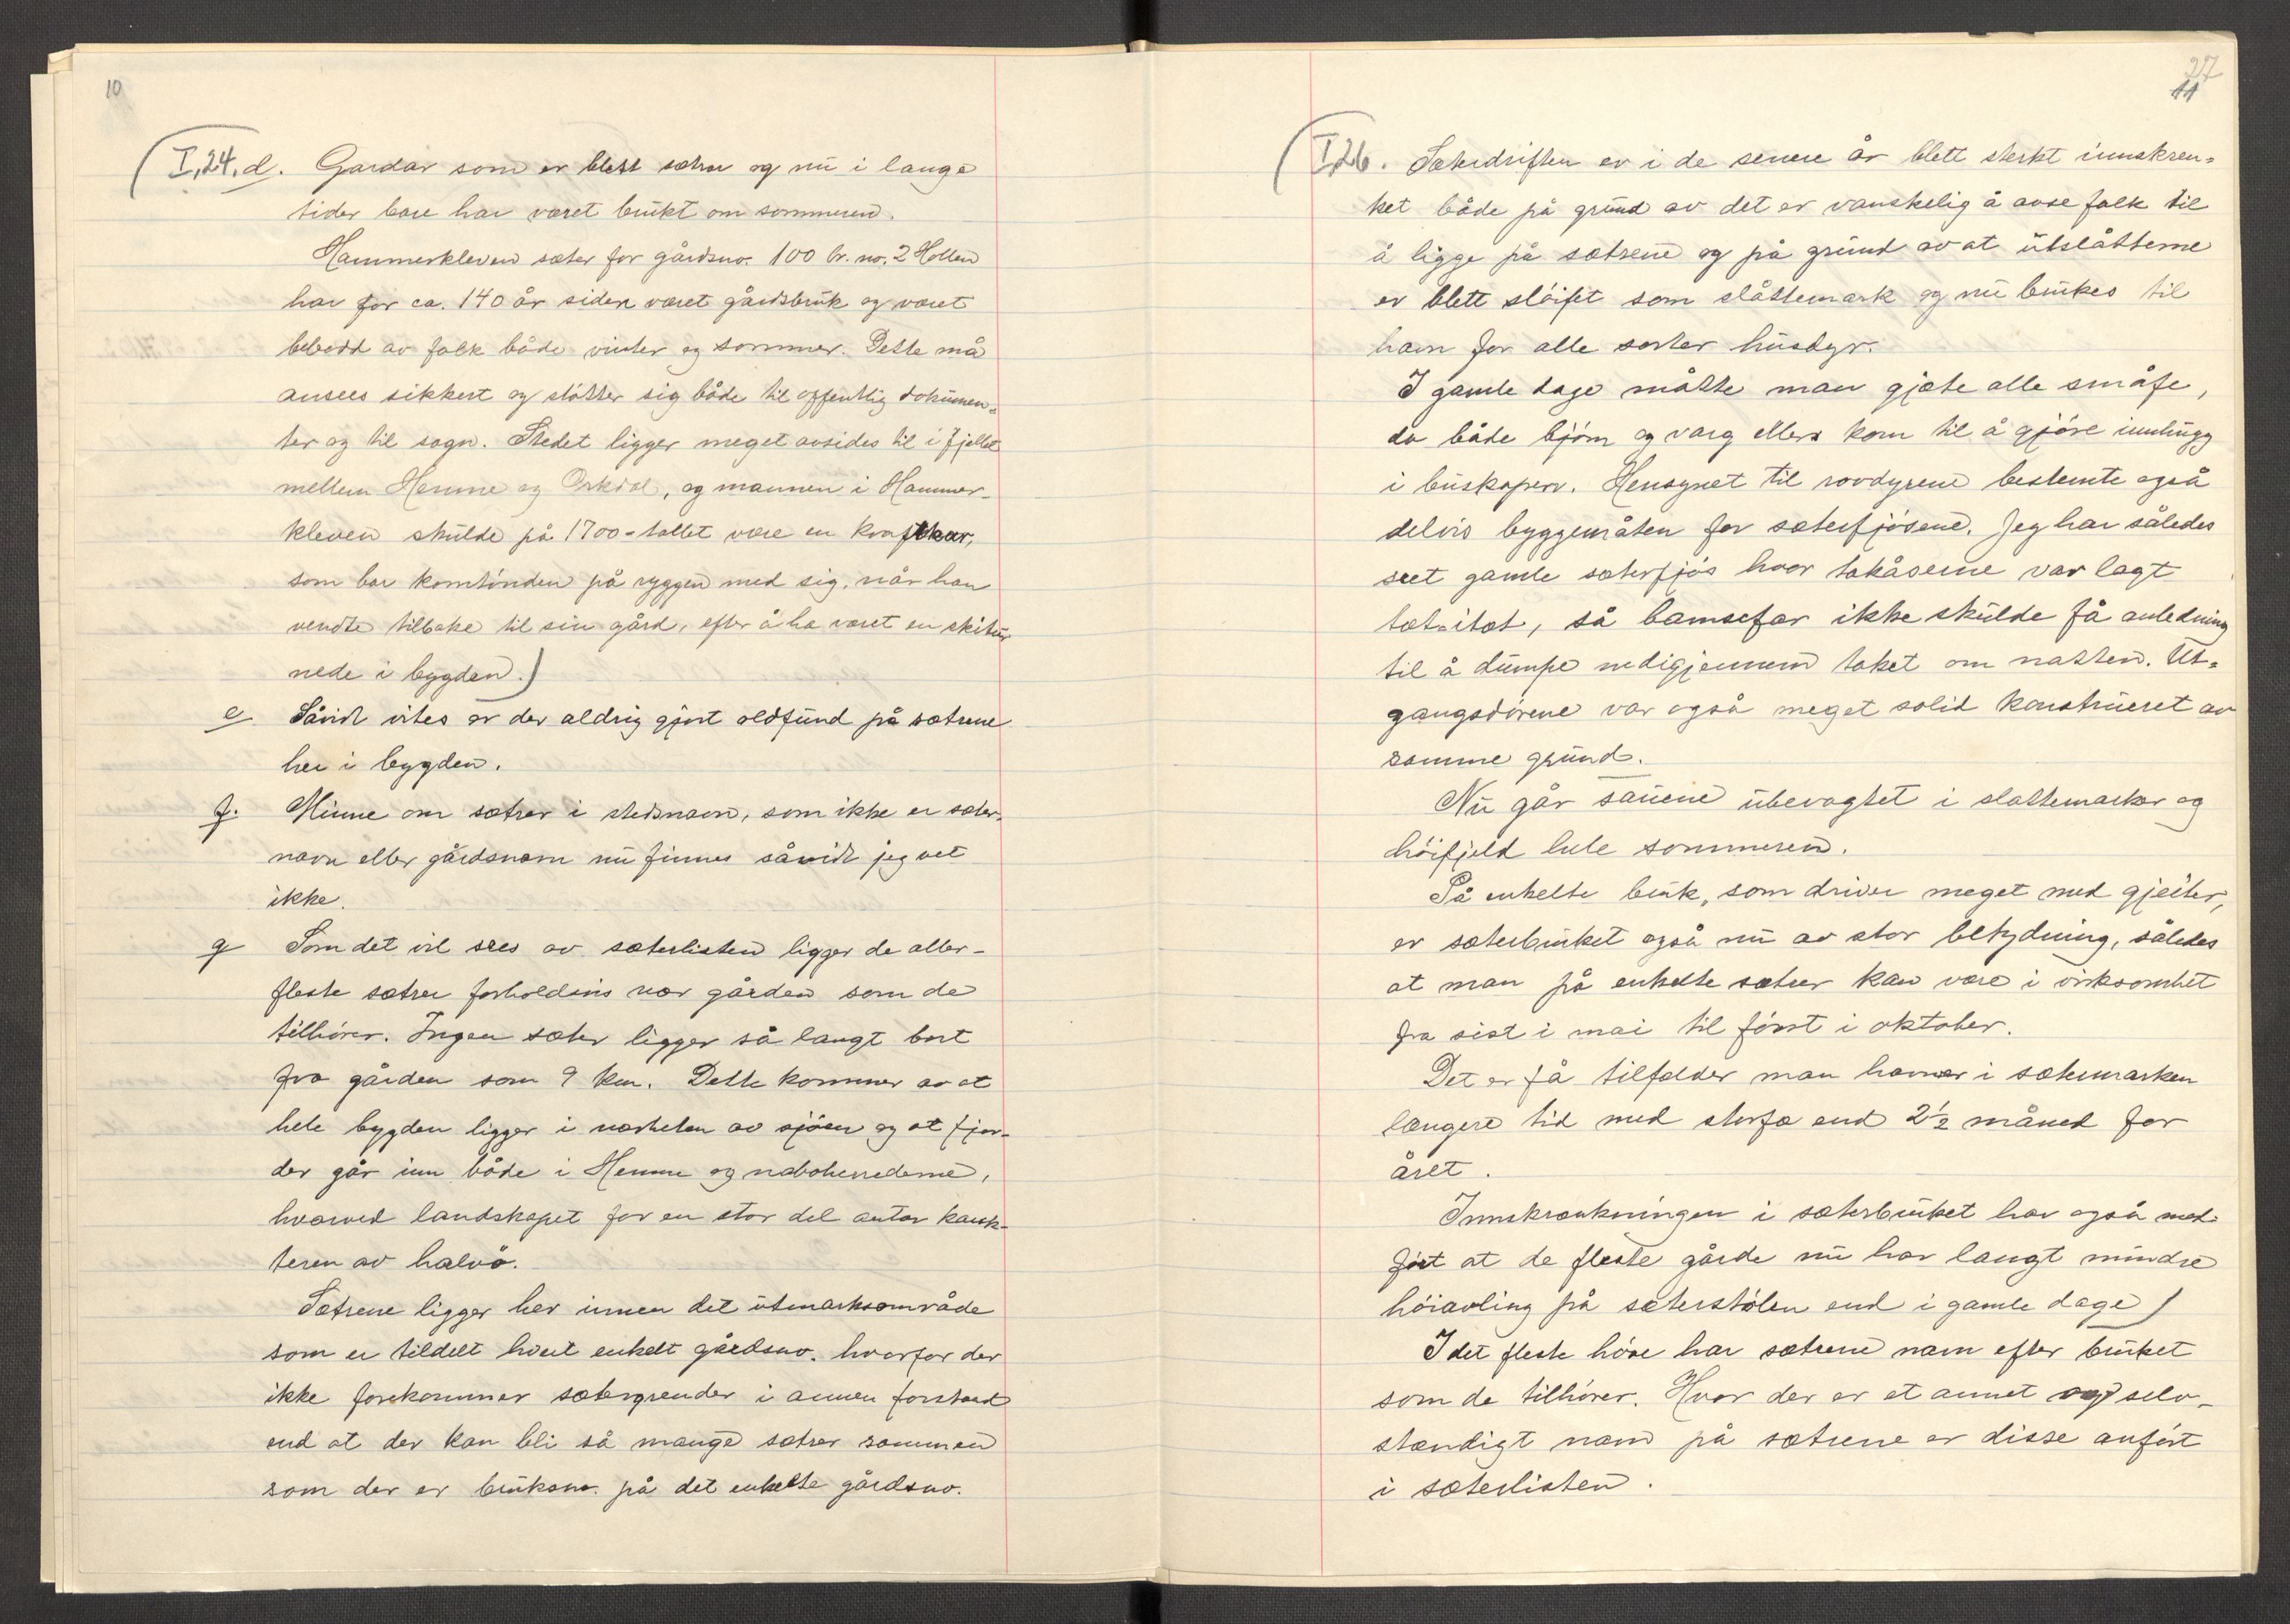 10
I,24.d. Gardar som er blett sætrar og nu i lange
tider bare har været brukt om sommeren.
Hammerkleven sæter for gårdsno. 100 br. no. 2 Hollen
har for ca. 140 år siden været gårdsbruk og været
bebodd av folk både vinter og sommer. Dette må
ansees sikkert og støtter sig både til offentlig dokumen-
ter og til sagn. Stedet ligger meget avsides til i fjellet
mellem Hemne og Orkdal, og mannen i Hammer-
kleven skulde på 1700-tallet være en kraftkar,
som bar korntönden på ryggen med sig, når han
vendte tilbake til sin gård, efter å ha været en skitur
nede i bygden.)
e. Såvidt vites er der aldrig gjort oldfund på sætrene
her i bygden.
f. Minne om sætrer i stedsnavn, som ikke er sæter-
navn eller gårdsnavn nu finnes såvidt jeg vet
ikke.
g Som det vil sees av sæterlisten ligger de aller-
fleste sætrer forholdsvis nær gården som de
tilhörer. Ingen sæter ligger så langt bort
fra gården som 9 km. Dette kommer av at
hele bygden ligger i nærheten av sjöen og at fjor-
der går inn både i Hemne og naboherrederne,
hvorved landskapet for en stor del antar karak-
teren av halvö.
Sætrene ligger her innen det utmarksområde
som er tildelt hvert enkelt gårdsno. hvorfor der
ikke forekommer sætergrender i annen forstand
end at der kan bli så mange sætrer sammen
som der er bruksno. på det enkelte gårdsno.
27
11
I26. Sæterdriften er i de senere år blett sterkt innskren-
ket både på grund av det er vanskelig å avse folk til
å ligge på sætrene og på grund av at utslåtterne
er blett slöifet som slåttemark og nu brukes til
havn for alle sorter husdyr.
I gamle dage måtte man gjæte alle småfe,
da både björn og varg ellers kom til å gjöre innhugg
i buskapen. Hensynet til rovdyrene bestemte også
delvis byggemåten for sæterfjösene. Jeg har således
seet gamle sæterfjös hvor takåserne var lagt
tæt-i-tæt, så bamsefar ikke skulde få anledning
til å dumpe nedigjennem taket om natten. Ut-
gangsdörene var også meget solid konstrueret av
samme grund.
Nu går sauene ubevogtet i slåttemarker og
höifjeld hele sommeren.
På enkelte bruk, som driver meget med gjeiter,
er sæterbruket også nu av stor betydning, således
at man på enkelte sætrer kan være i virksomhet
fra sist i mai til förts i oktober.
Det er få tilfælder man havner i sætermarken
længere tid med storfæ end 2½ måned for
året.
Innskrænkningen i sæterbruket har også med-
fört at de fleste gårde nu har langt mindre
höiavling på sæterstölen end i gamle dage)
I det fleste höve har sætrene navn efter bruket
som de tilhörer. Hvor der er et annet og selv-
stændigt navn på sætrene er disse anfört
i sæterlisten.